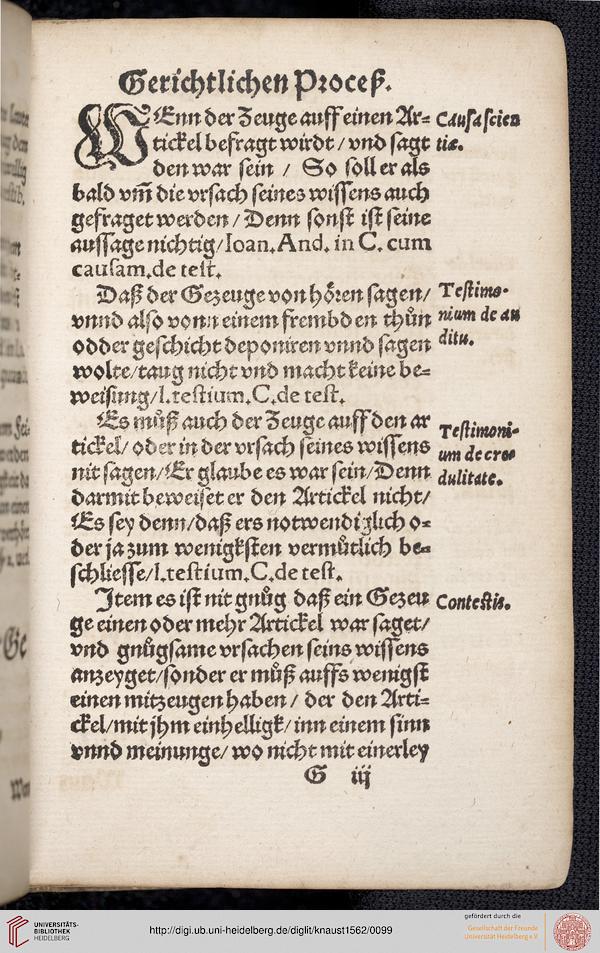 Gerichtlichen Proceß.
WEnn der Zeuge auff einen Ar=
tickel befragt wirdt / vnd sagt
den war sein / So soll er als
bald vm̃ die vrsach seines wissens auch
gefraget werden / Denn sonst ist seine
aussage nichtig / Ioan. And. in C. cum
causam. de test.
Causa scien
tiæ.
Daß der Gezeuge von hören sagen /
vnnd also vonn einem frembden thůn
odder geschicht deponiren vnnd sagen
wolte / taug nicht vnd macht keine be=
weisung / l. testium. C. de test.
Testimo-
nium de au
ditu.
Es můß auch der Zeuge auff den ar
tickel / oder in der vrsach seines wissens
nit sagen / Er glaube es war sein / Denn
darmit beweiset er den Artickel nicht /
Es sey denn / daß ers notwendiglich o=
der ja zum wenigksten vermůtlich be=
schliesse / l. testium. C. de test.
Testimoni-
um de cre=
dulitate.
Item es ist nit gnůg daß ein Gezeu
ge einen oder mehr Artickel war saget /
vnd gnůgsame vrsachen seins wissens
anzeyget / sonder er můß auffs wenigst
einen mitzeugen haben / der den Arti=
ckel / mit jhm einhelligk / inn einem sinn
vnnd meinunge / wo nicht mit einerley
Contestis.
G iij
UNIVERSITÄTS-
BIBLIOTHEK
HEIDELBERG
http://digi.ub.uni-heidelberg.de/diglit/knaust1562/0099
gefördert durch die
Gesellschaft der Freunde
Universität Heidelberg e.V.